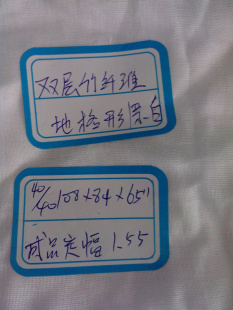 双层竹纤维
地格形漂白
40/40 108×84×65"
成品定幅 1.55